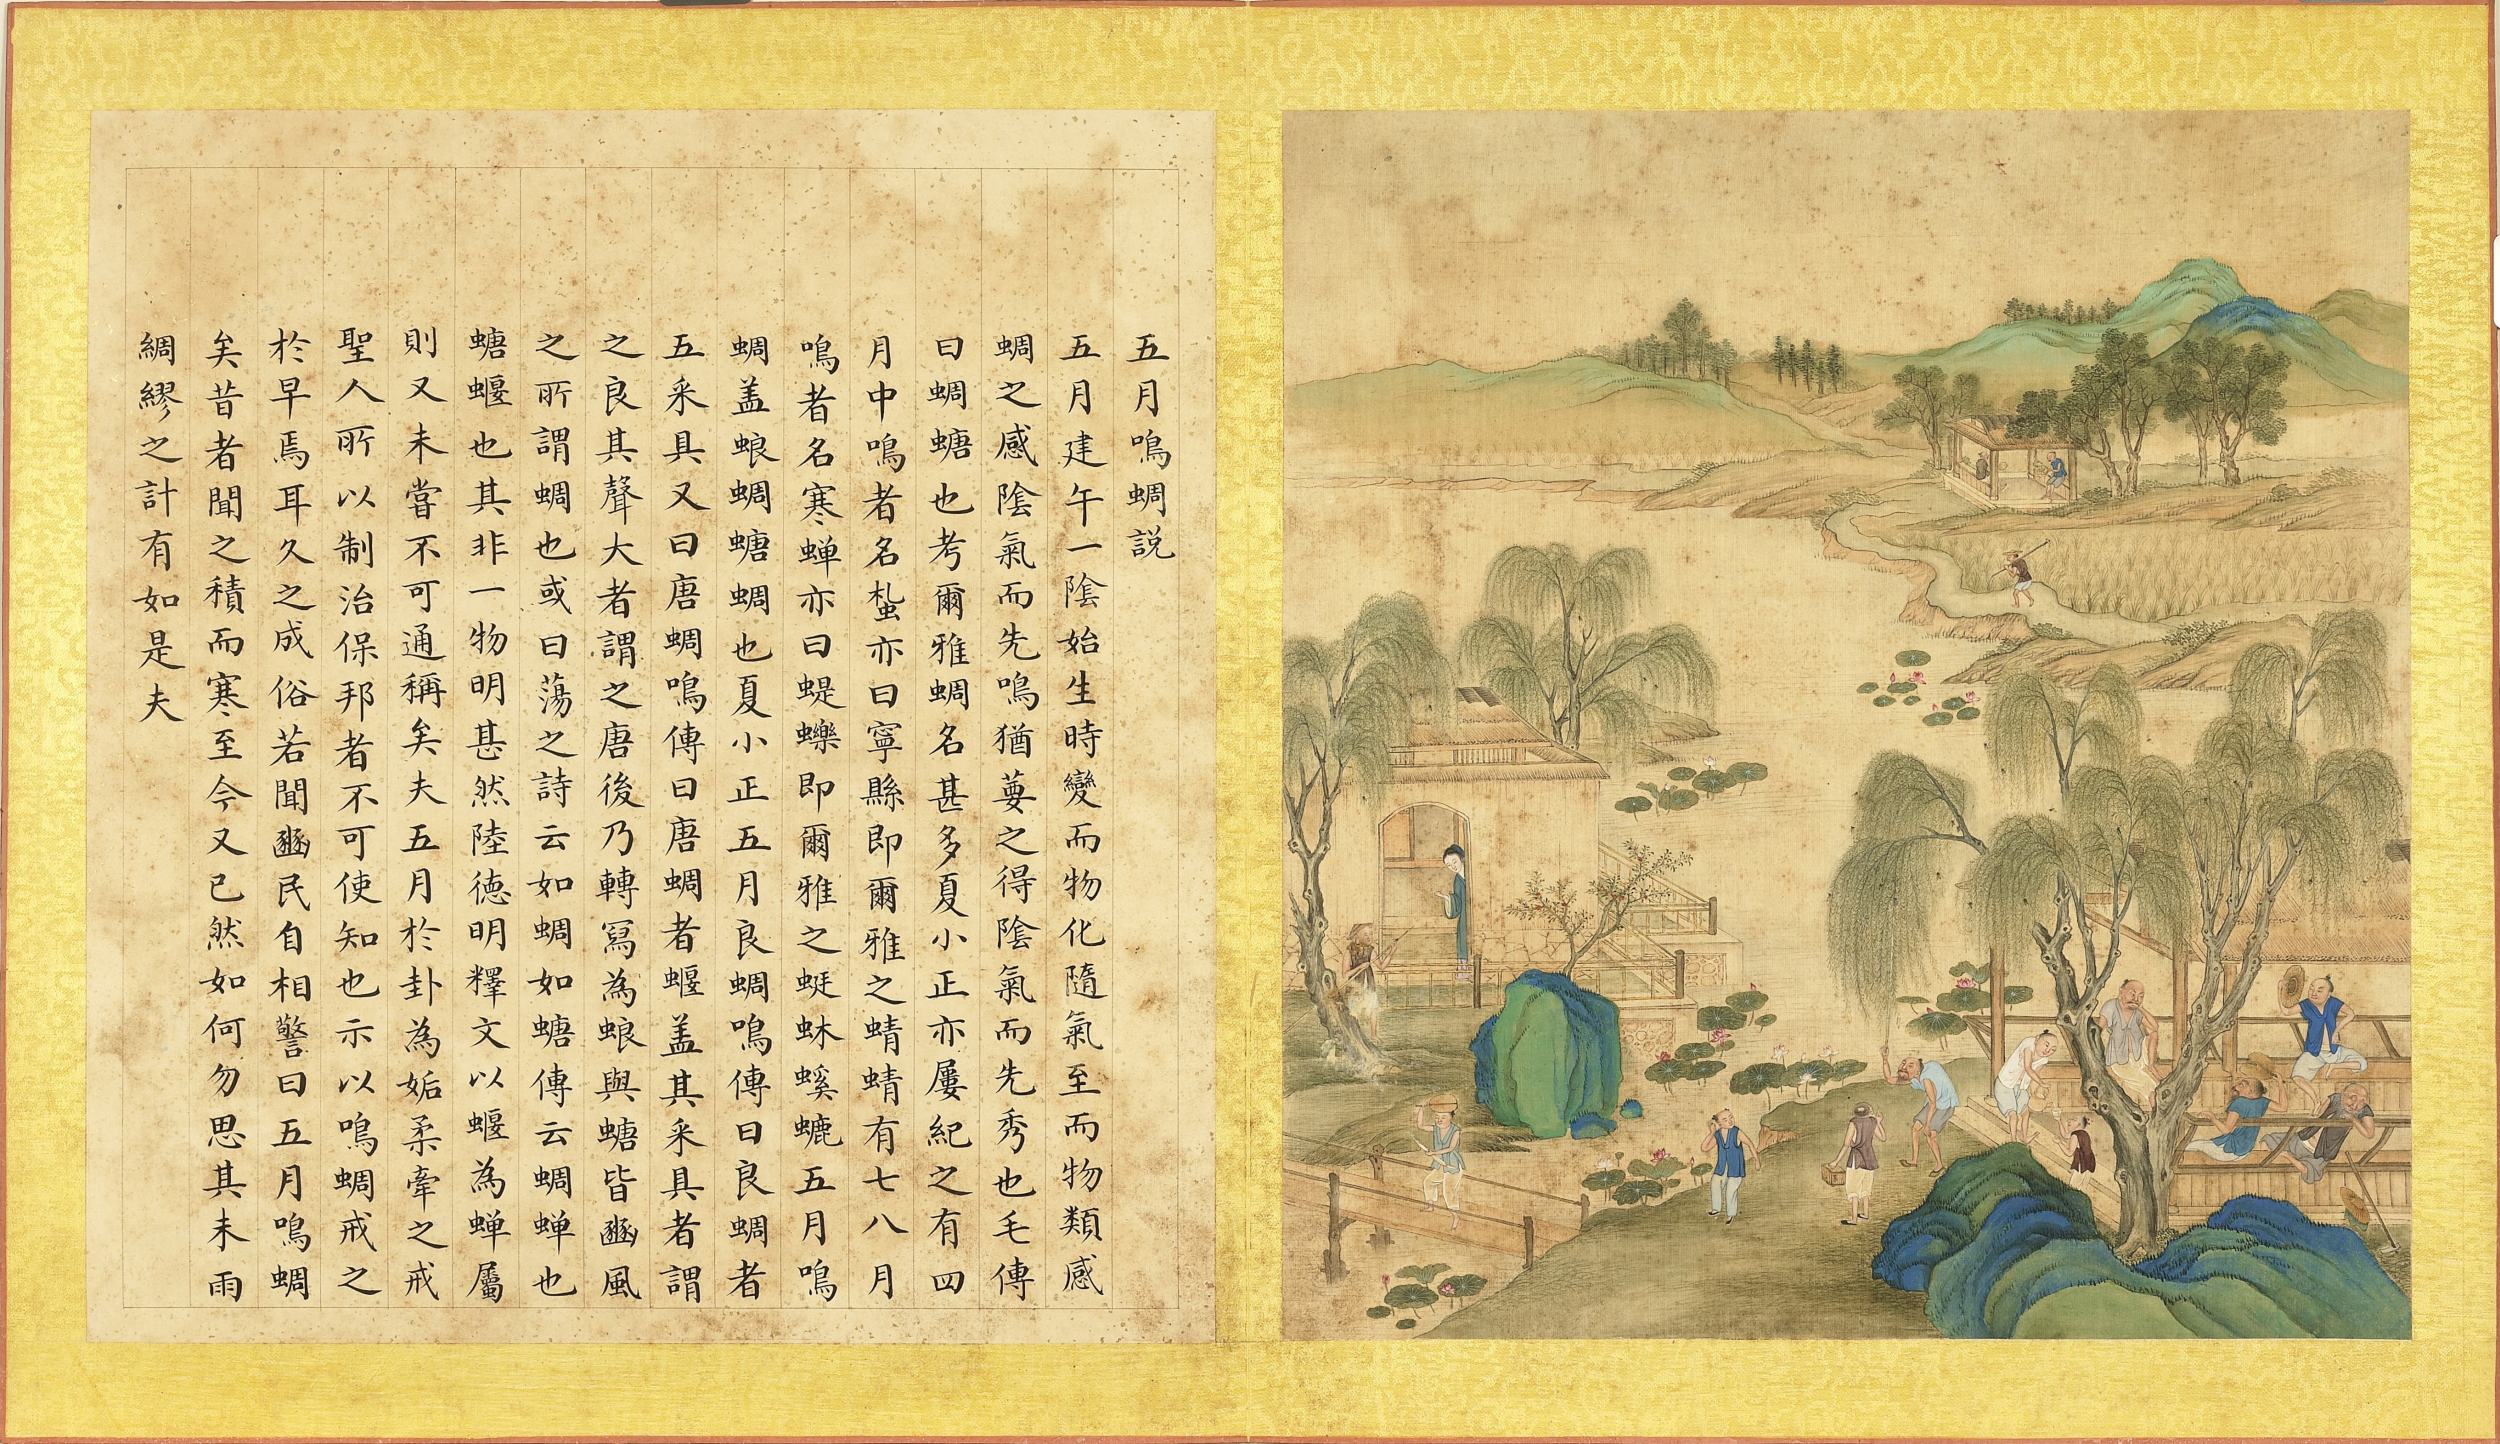 五月鳴蜩説
五月建午一陰始生時變而物化隨氣至而物類感
蜩之感陰氣而先鳴猶葽之得陰氣而先秀也毛傳
曰蜩螗也考爾雅蜩名甚多夏小正亦屢紀之有四
月中鳴者名蚻亦曰寧縣即爾雅之蜻蜻有七八月
鳴者名寒蝉亦曰蝭蠑即爾雅之蜓蚞螇螰五月鳴
蜩盖蜋蜩螗蜩也夏小正五月良蜩鳴傳曰良蜩者
五采具又曰唐蜩鳴傳曰唐蜩者蝘盖其采具者謂
之良其聲大者謂之唐後乃轉寫為蜋與螗皆豳風
之所謂蜩也或曰蕩之詩云如蜩如螗傳云蜩蝉也
螗蝘也其非一物明甚然陸德明釋文以蝘為蝉屬
則又未嘗不可通稱矣夫五月於卦為姤柔牽之戒
聖人所以制治保邦者不可使知也示以鳴蜩戒之
於早焉耳久之成俗若聞豳民自相警曰五月鳴蜩
矣昔者聞之積而寒至今又已然如何勿思其未雨
綢繆之計有如是夫